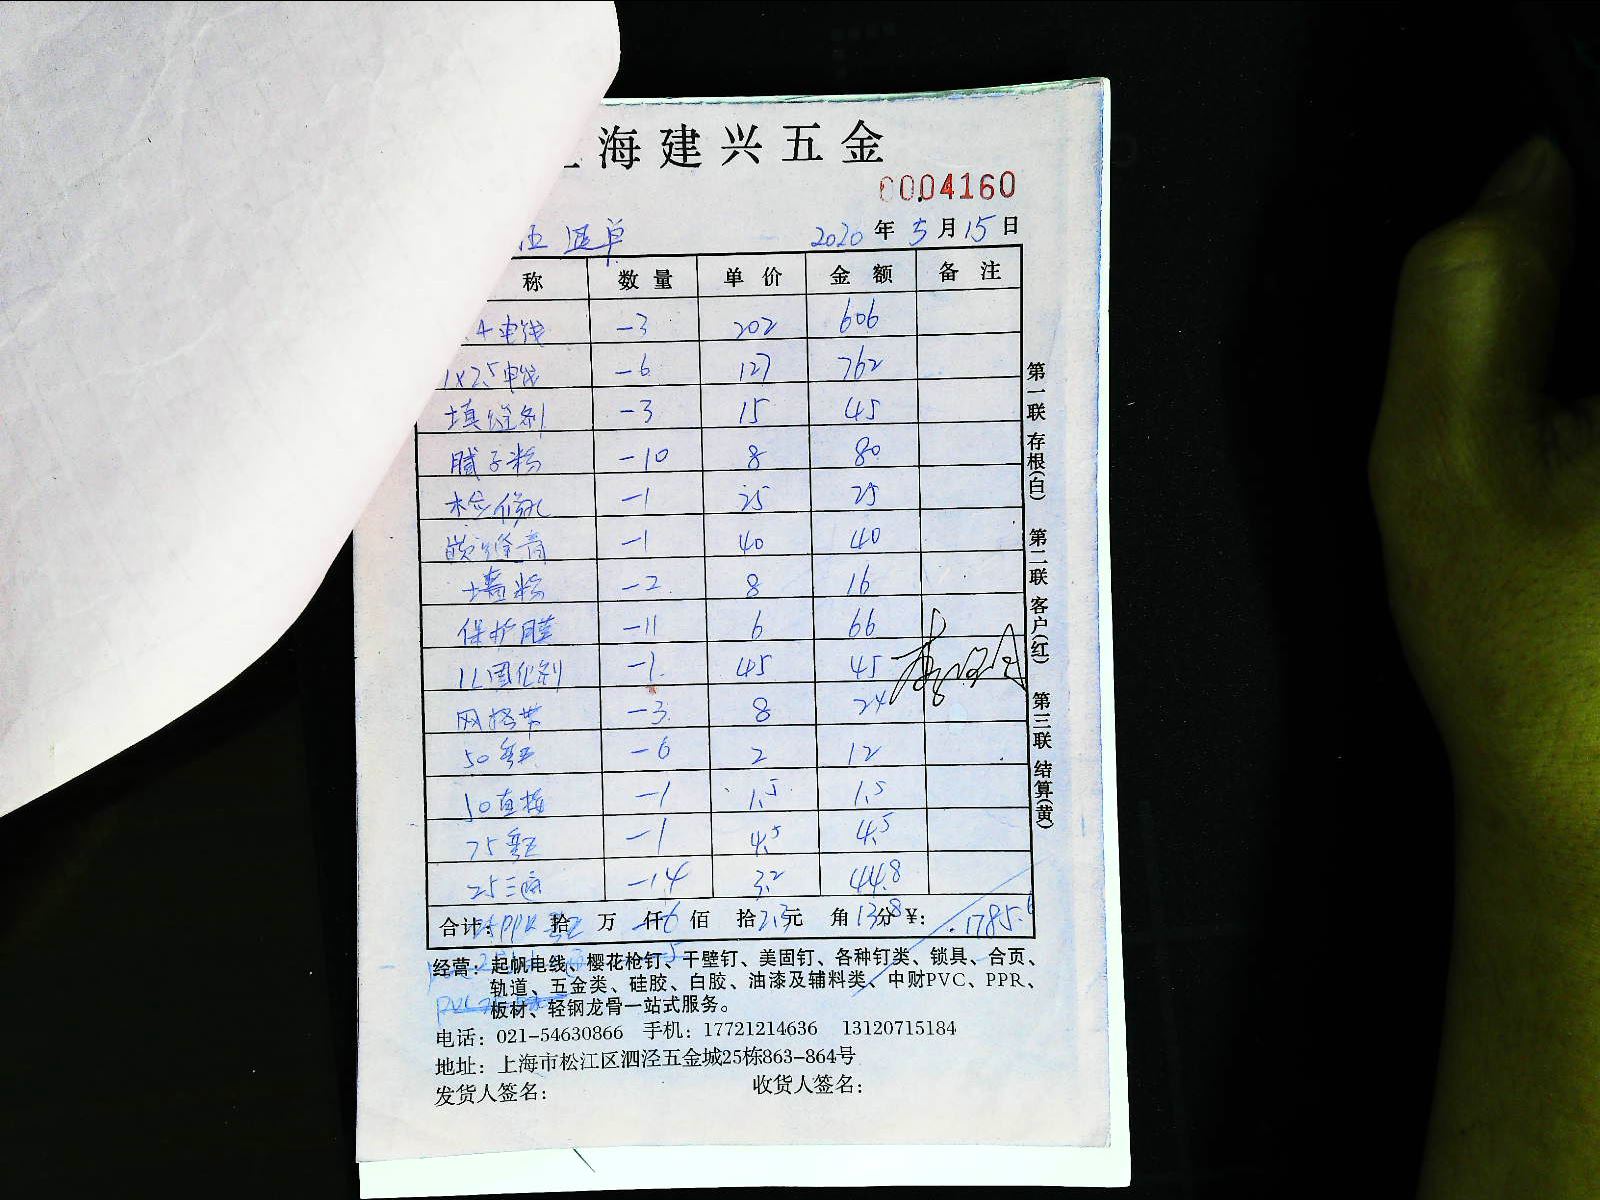 海建兴五金
0004160
退单 2020年5月15日
称 数量 单价 金额 备注
4电线 -3 202 606
1x2.5电线 -6 127 762
填缝剂 -3 15 45
腻子粉 -10 8 80
检修孔 -1 25 25
嵌缝膏 -1 40 40
墙粉 -2 8 16
保护膜 -11 6 66
1L固化剂 -1 45 45
网格带 -3 8 24
50弯 -6 2 12
50直接 -1 1.5 1.5
75弯 -1 4.5 4.5
25三通 -14 3.2 44.8
合计: 拾 万 仟 佰 拾 元 角 分 ¥: 1785.6
PPR -6 2.3 13.8
经营: 起帆电线、樱花枪钉、干壁钉、美固钉、各种钉类、锁具、合页、
轨道、五金类、硅胶、白胶、油漆及辅料类、中财PVC、PPR、
板材、轻钢龙骨一站式服务。
电话: 021-54630866 手机: 17721214636 13120715184
地址: 上海市松江区泗泾五金城25栋863-864号
发货人签名: 收货人签名:
第一联 存根(白) 第二联 客户(红) 第三联 结算(黄)